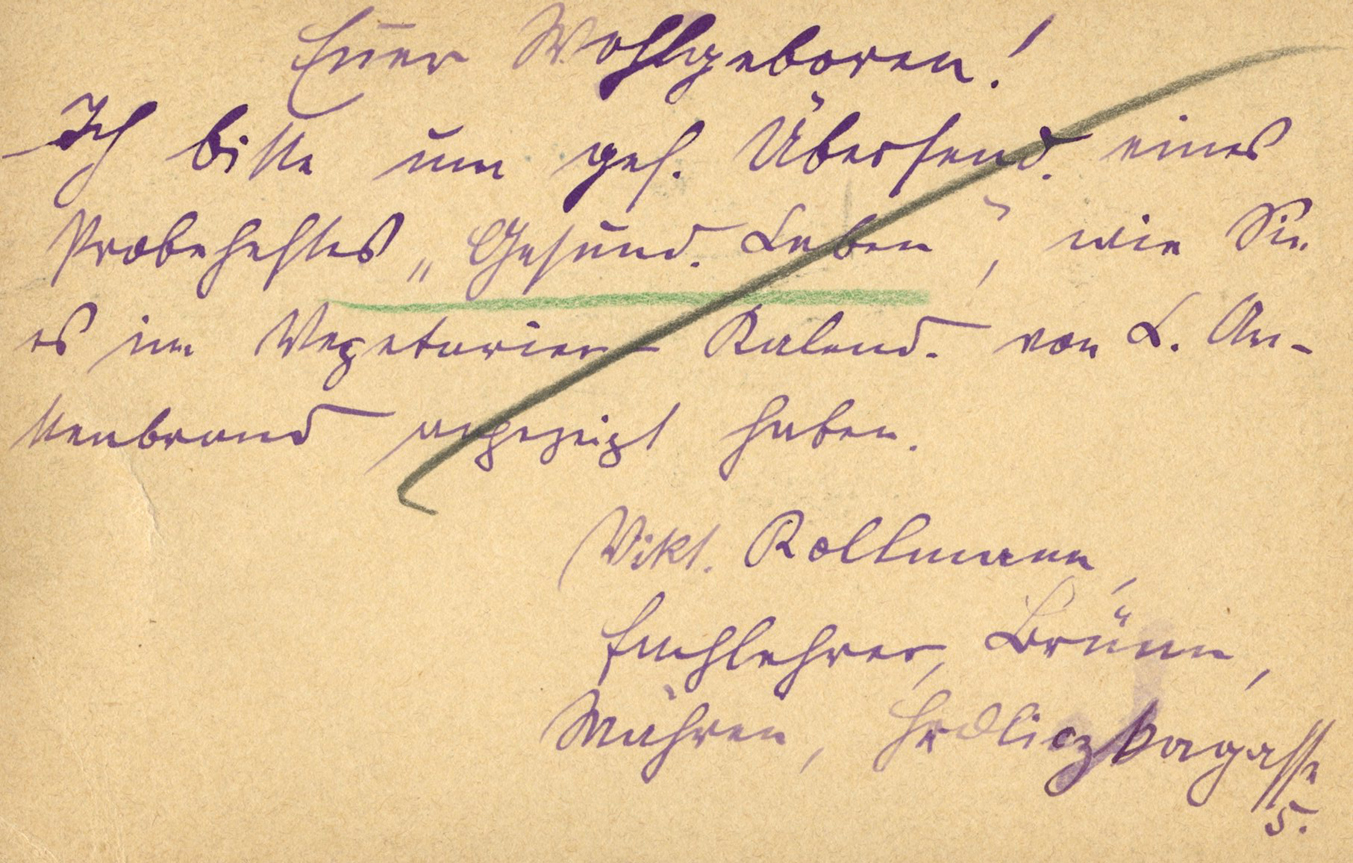 Euer Wohlgeboren!
Ich bitte um gef. Übersend. eines
Probeheftes „Gesund. Leben“, wie Sie
es im Vegetarier-Kalend. von L. An-
kenbrand angezeigt haben.
Vikt. Rollmann,
Fachlehrer, Brünn,
Mähren, Hrdliczkagasse
5.